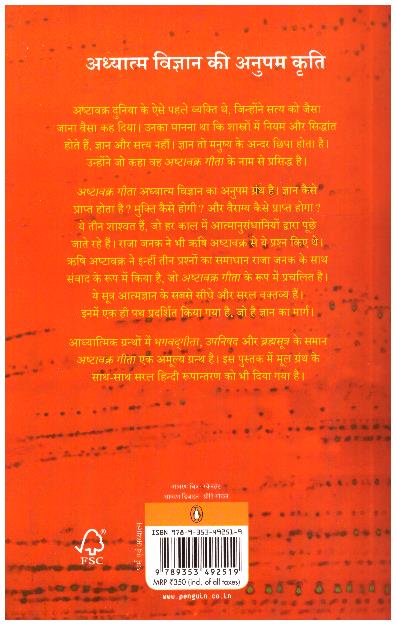 अध्यात्म विज्ञान की अनुपम कृति
अष्टावक्र दुनिया के ऐसे पहले व्यक्ति थे, जिन्होंने सत्य को जैसा
जाना वैसा कह दिया। उनका मानना था कि शास्त्रों में नियम और सिद्धांत
होते हैं, ज्ञान और सत्य नहीं। ज्ञान तो मनुष्य के अन्दर छिपा होता है।
उन्होंने जो कहा वह अष्टावक्र गीता के नाम से प्रसिद्ध है।
अष्टावक्र गीता अध्यात्म विज्ञान का अनुपम ग्रंथ है। ज्ञान कैसे
प्राप्त होता है? मुक्ति कैसे होगी? और वैराग्य कैसे प्राप्त होगा?
ये तीन शाश्वत हैं, जो हर काल में आत्मानुसंधानियों द्वारा पूछे
जाते रहे हैं। राजा जनक ने भी ऋषि अष्टावक्र से ये प्रश्न किए थे।
ऋषि अष्टावक्र ने इन्हीं तीन प्रश्नों का समाधान राजा जनक के साथ
संवाद के रूप में किया है, जो अष्टावक्र गीता के रूप में प्रचलित है।
ये सूत्र आत्मज्ञान के सबसे सीधे और सरल वक्तव्य हैं।
इनमें एक ही पथ प्रदर्शित किया गया है, जो है ज्ञान का मार्ग।
आध्यात्मिक ग्रन्थों में भगवद्गीता, उपनिषद और ब्रह्मसूत्र के समान
अष्टावक्र गीता एक अमूल्य ग्रन्थ है। इस पुस्तक में मूल ग्रंथ के
साथ-साथ सरल हिन्दी रूपान्तरण को भी दिया गया है।
आवरण चित्र
आवरण डिज़ाइन
FSC
धर्म एवं अध्यात्म
ISBN 978-9-353-49251-9
9 789353 492519
MRP ₹350 (incl. of all taxes)
www.penguin.co.in